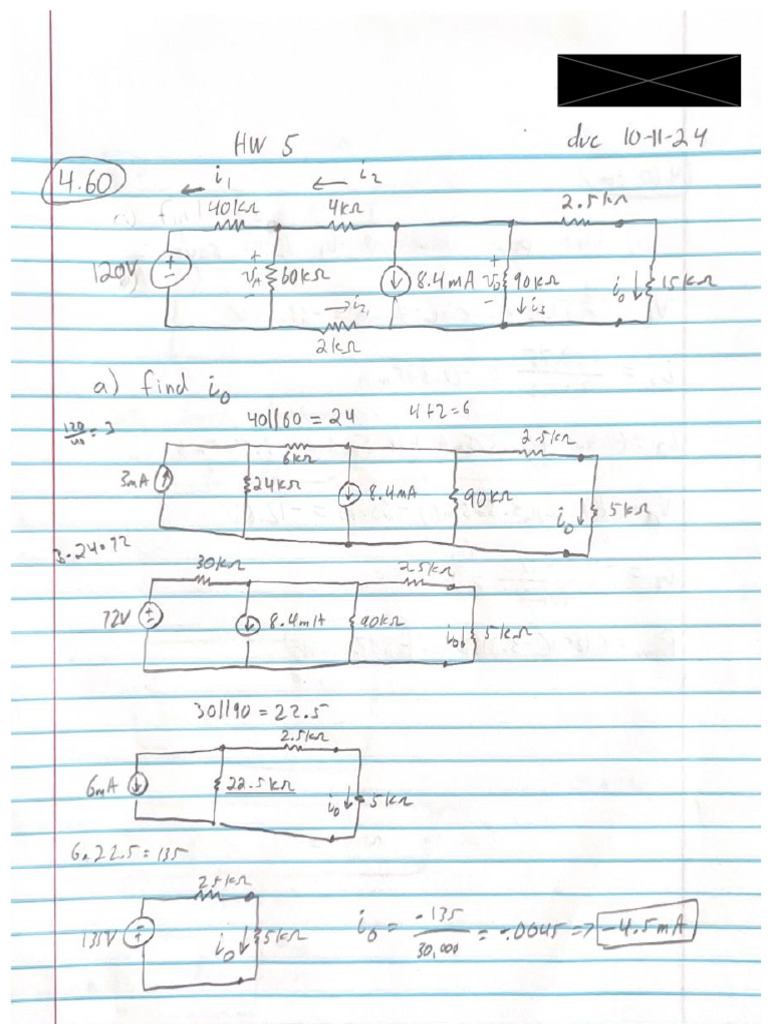 HW 5 due 10-11-24
4.60
i₁ i₂
40kΩ 4kΩ 2.5kΩ
120V + - + vA - 60kΩ 8.4mA + v0 - 90kΩ i₀ 15kΩ
i₂, i₃
2kΩ
a) find i₀
120/40 = 3 40||60 = 24 4+2=6
6kΩ 2.5kΩ
3mA 24kΩ 8.4mA 90kΩ i₀ 5kΩ
3·24=72
30kΩ 2.5kΩ
72V + - 8.4mA 90kΩ i₀ 5kΩ
30||90 = 22.5
2.5kΩ
6mA 22.5kΩ i₀ 5kΩ
6·22.5 = 135
25kΩ
135V i₀ 5kΩ i₀ = -135/30,000 = -.0045 => -4.5mA